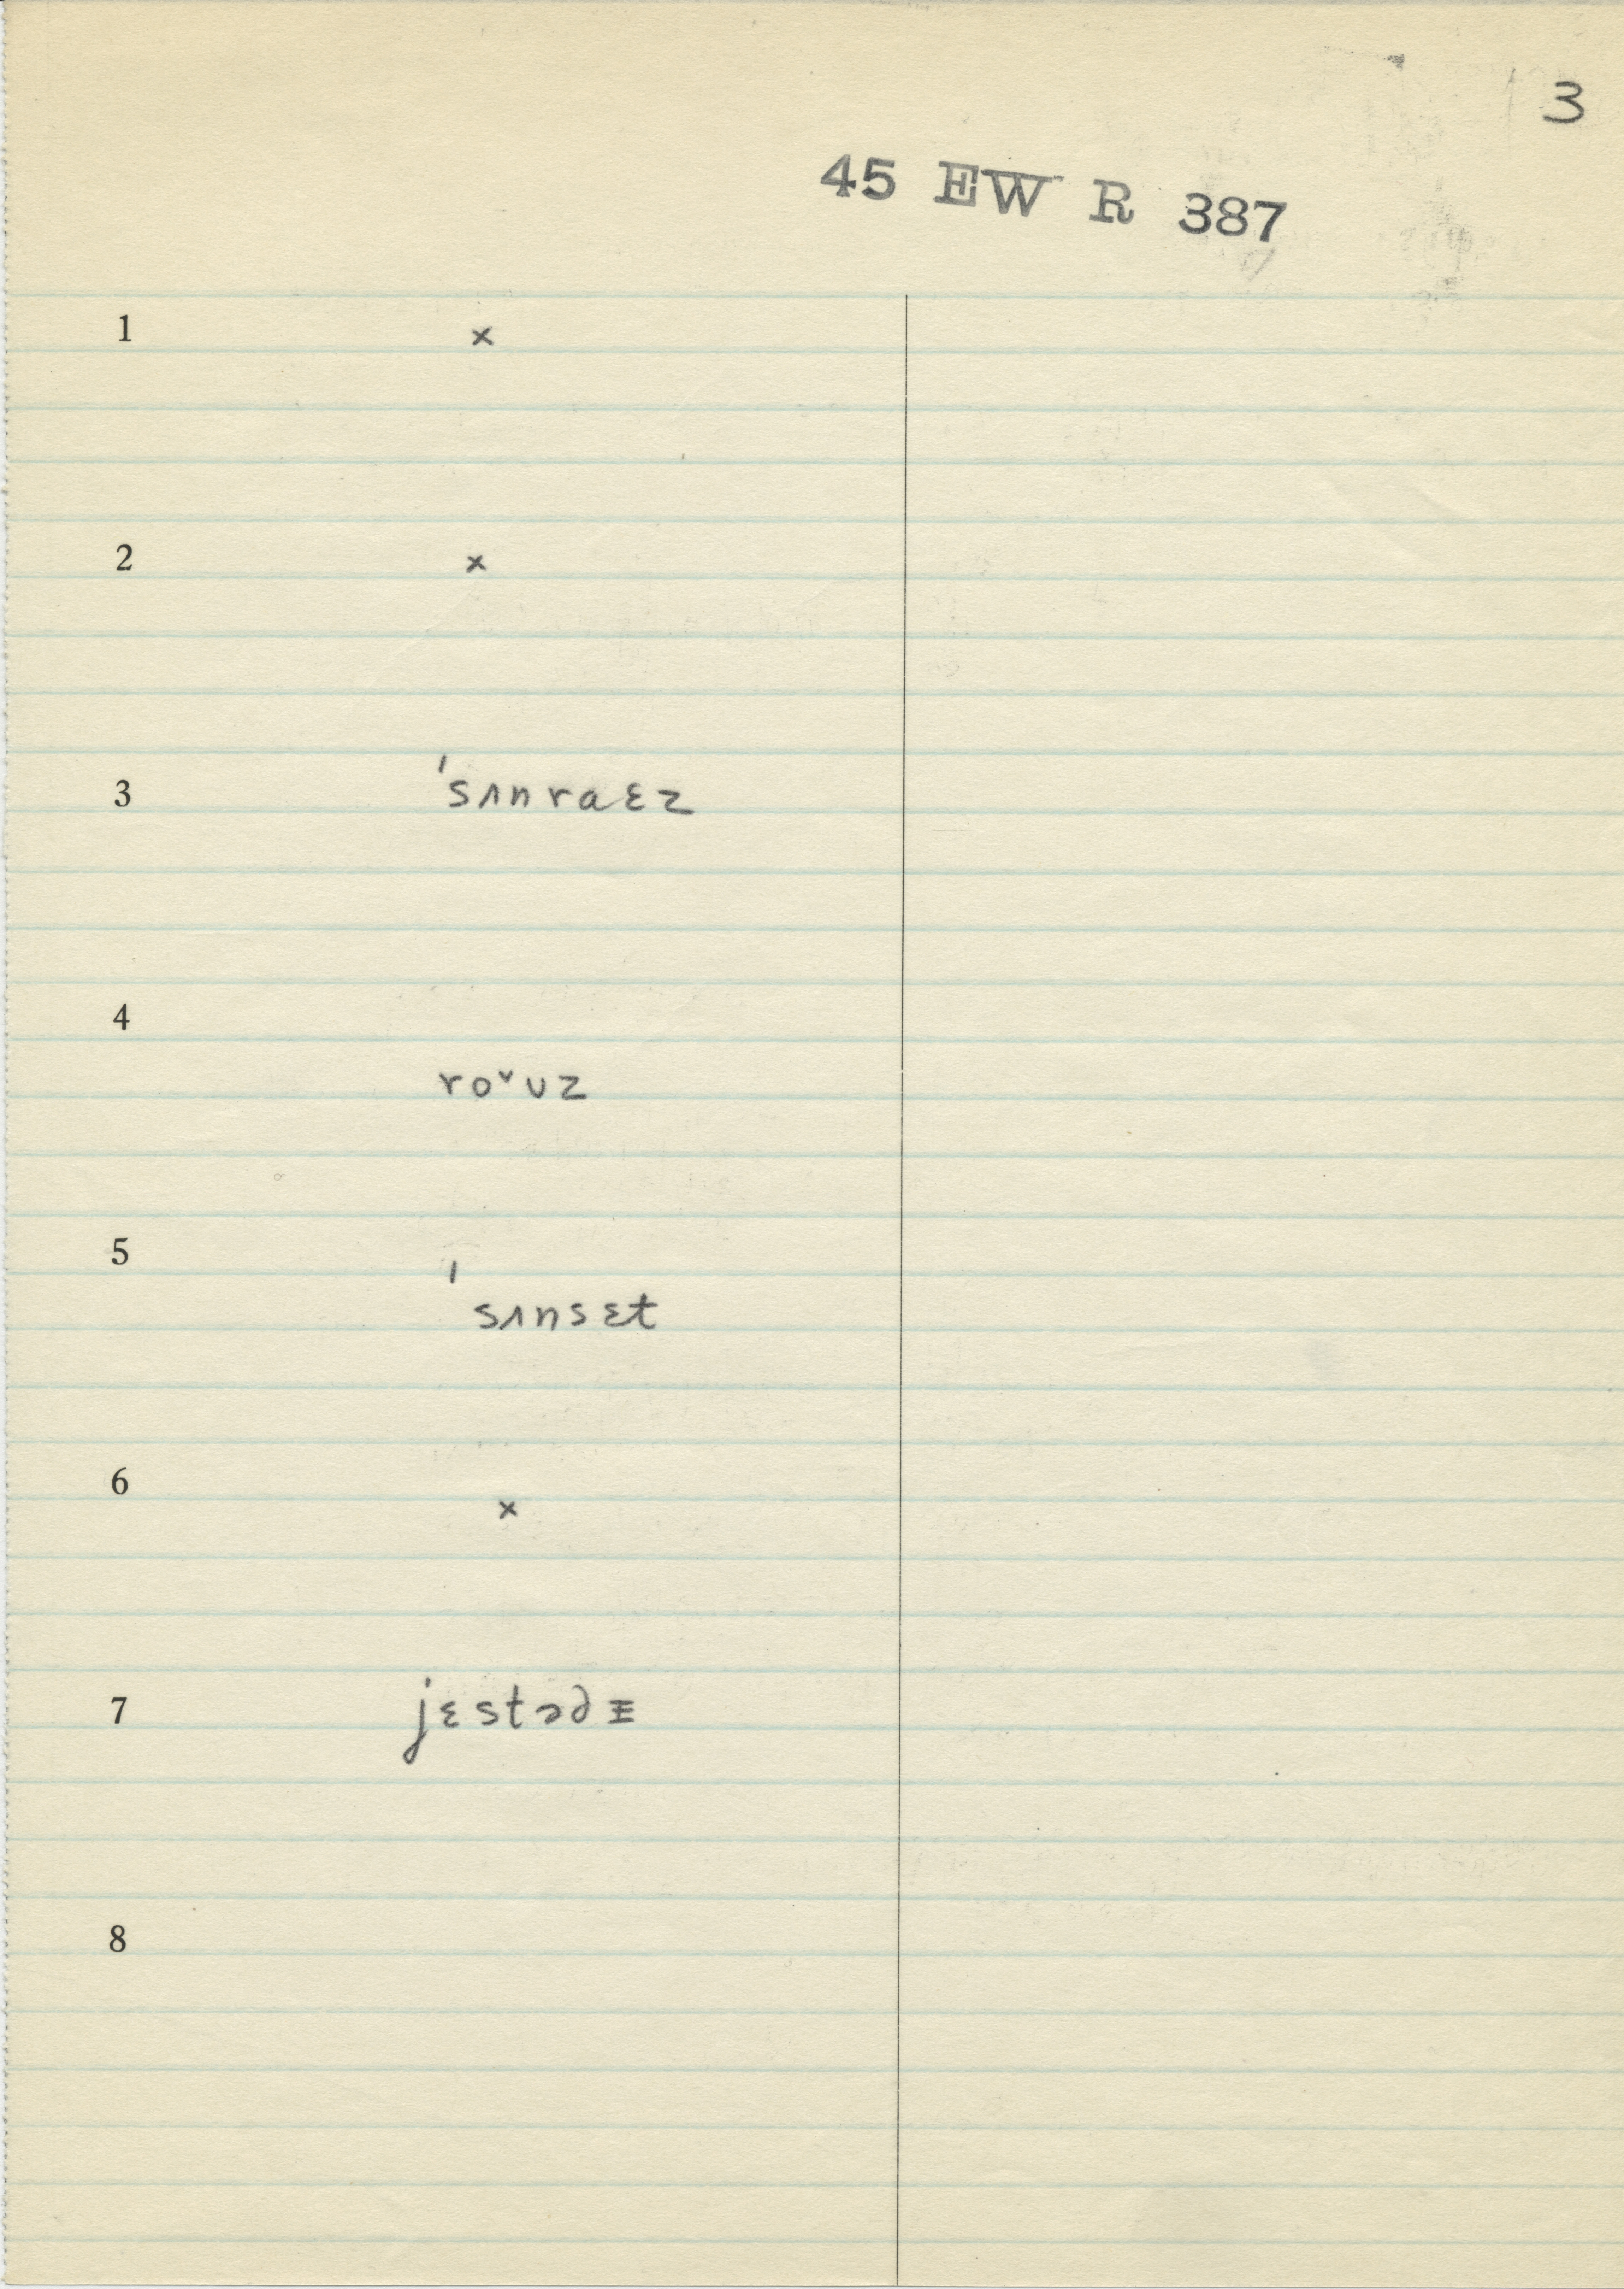 3
45 EW R 387
1 x
2 x
3 ˈsʌnraɛz
4 roᵛuz
5 ˈsʌnsɛt
6 x
7 jɛstədᵻ
8